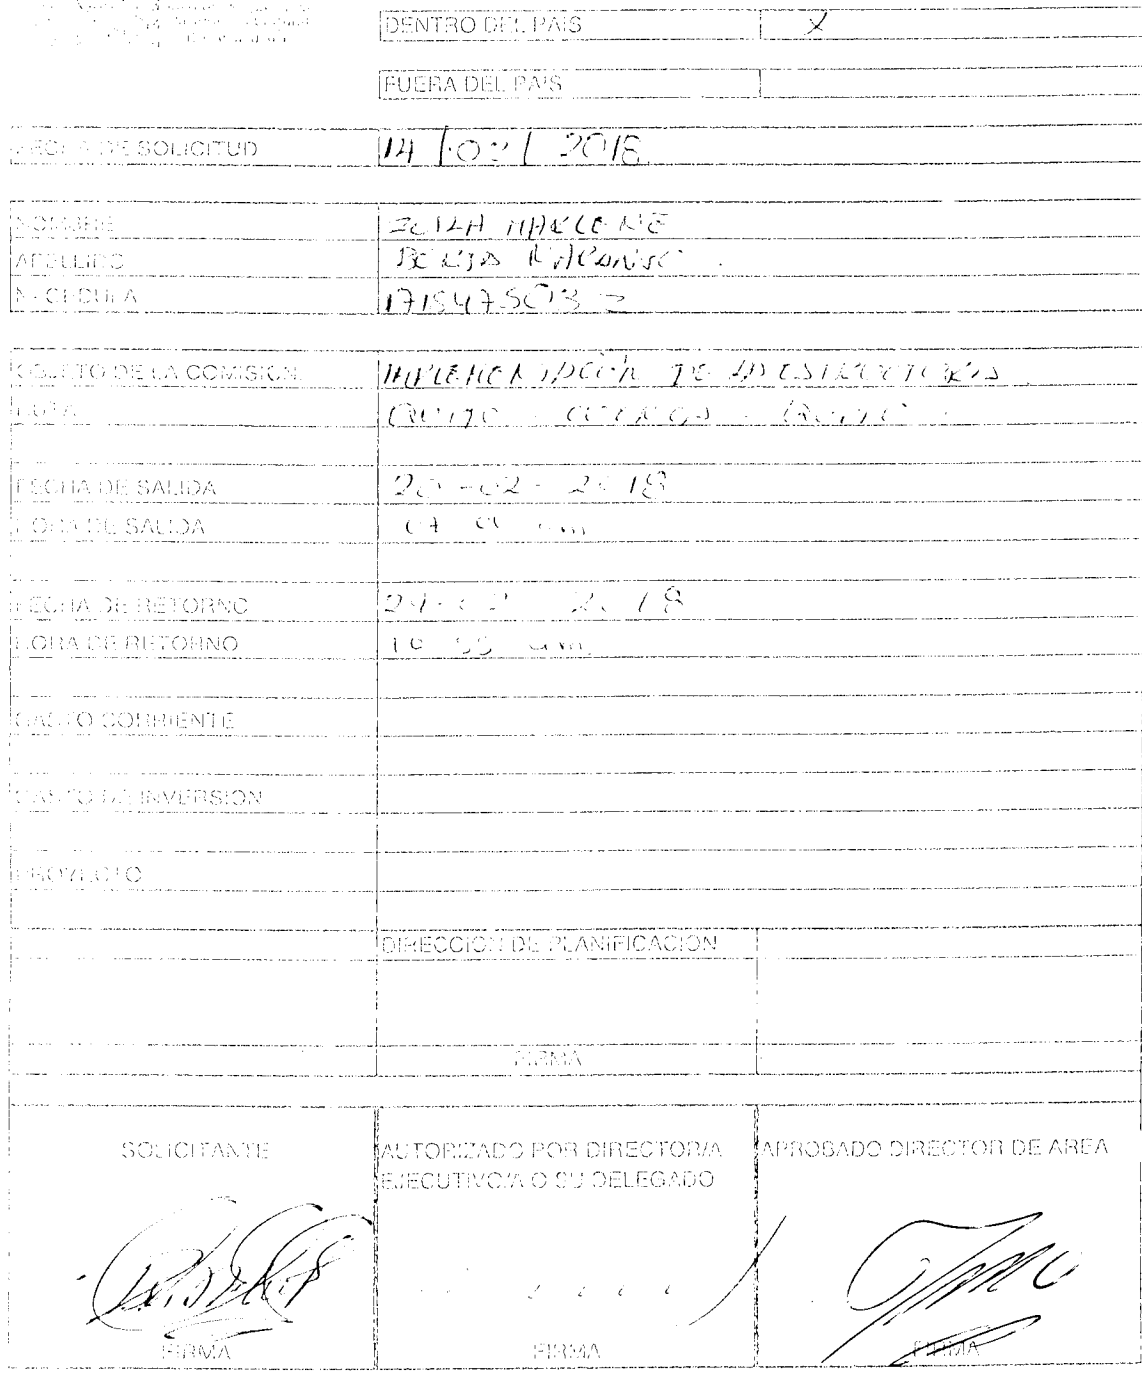 DENTRO DEL PAIS X
FUERA DEL PAIS
FECHA DE SOLICITUD 14/02/2018
NOMBRE MARLENE
APELLIDO
N. CEDULA 171547503
OBJETO DE LA COMISION IMPLEMENTACIÓN DE
RUTA QUITO - CUENCA - QUITO
FECHA DE SALIDA 20-02-2018
HORA DE SALIDA 07 00 am
FECHA DE RETORNO 2018
HORA DE RETORNO 10 55 am
GASTO CORRIENTE
GASTO DE INVERSION
PROYECTO
DIRECCION DE PLANIFICACION
FIRMA
SOLICITANTE AUTORIZADO POR DIRECTOR/A APROBADO DIRECTOR DE AREA
EJECUTIVO/A O SU DELEGADO
FIRMA FIRMA FIRMA